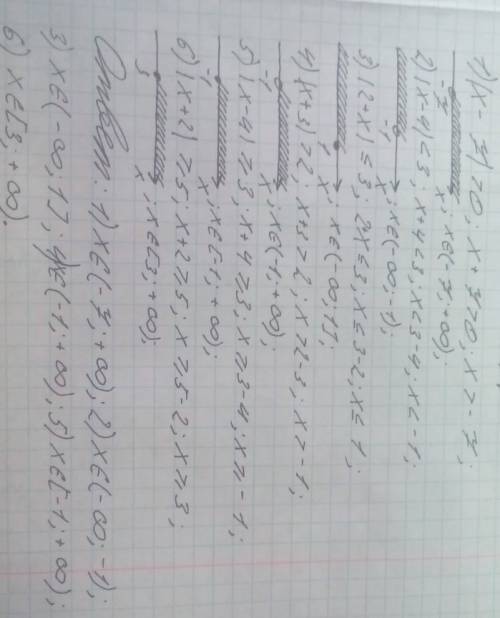 1) |x - 7| > 0; x + 7 > 0; x > - 7;
-7 x; x∈(-7; +∞);
2) |x - 4| < 3; x + 4 < 3; x < 3 - 4; x < -1;
-1 x; x∈(-∞; -1);
3) |2 + x| ≤ 3; 2x ≤ 3; x ≤ 3 - 2; x ≤ 1;
1 x; x∈(-∞; 1];
4) |x + 3| > 2; x + 3 > 2; x > 2 - 3; x > -1;
-1 x; x∈(-1; +∞);
5) |x - 4| ≥ 3; x + 4 ≥ 3; x ≥ 3 - 4; x ≥ -1;
-1 x; x∈[-1; +∞);
6) |x + 2| ≥ 5; x + 2 ≥ 5; x ≥ 5 - 2; x ≥ 3;
3 x; x∈[3; +∞);
Ответ: 1) x∈(-7; +∞); 2) x∈(-∞; -1);
3) x∈(-∞; 1]; 4) x∈(-1; +∞); 5) x∈[-1; +∞);
6) x∈[3; +∞).